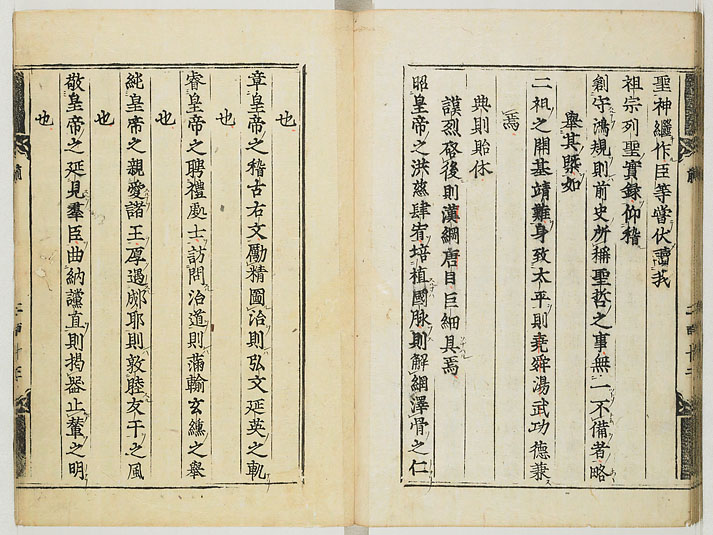 聖神繼作臣等當伏讀我
祖宗列聖實錄仰稽
創守鴻規則前史所稱聖哲之事無一不備者略
舉其槩如
二祖之開基靖難身致太平則堯舜湯武功德兼
焉
典則貽休
謨烈啓後則漢綱唐目巨細具焉
昭皇帝之洪慈肆宥培植國脉則解綱澤骨之仁
也
章皇帝之稽古右文勵精圖治則弘文延英之軌
也
睿皇帝之聘禮處士訪問治道則蒲輪玄纁之舉
也
純皇帝之親愛諸王厚遇郕耶則敦睦友于之風
也
敬皇帝之延見羣臣曲納讜直則揭器止輦之明
也